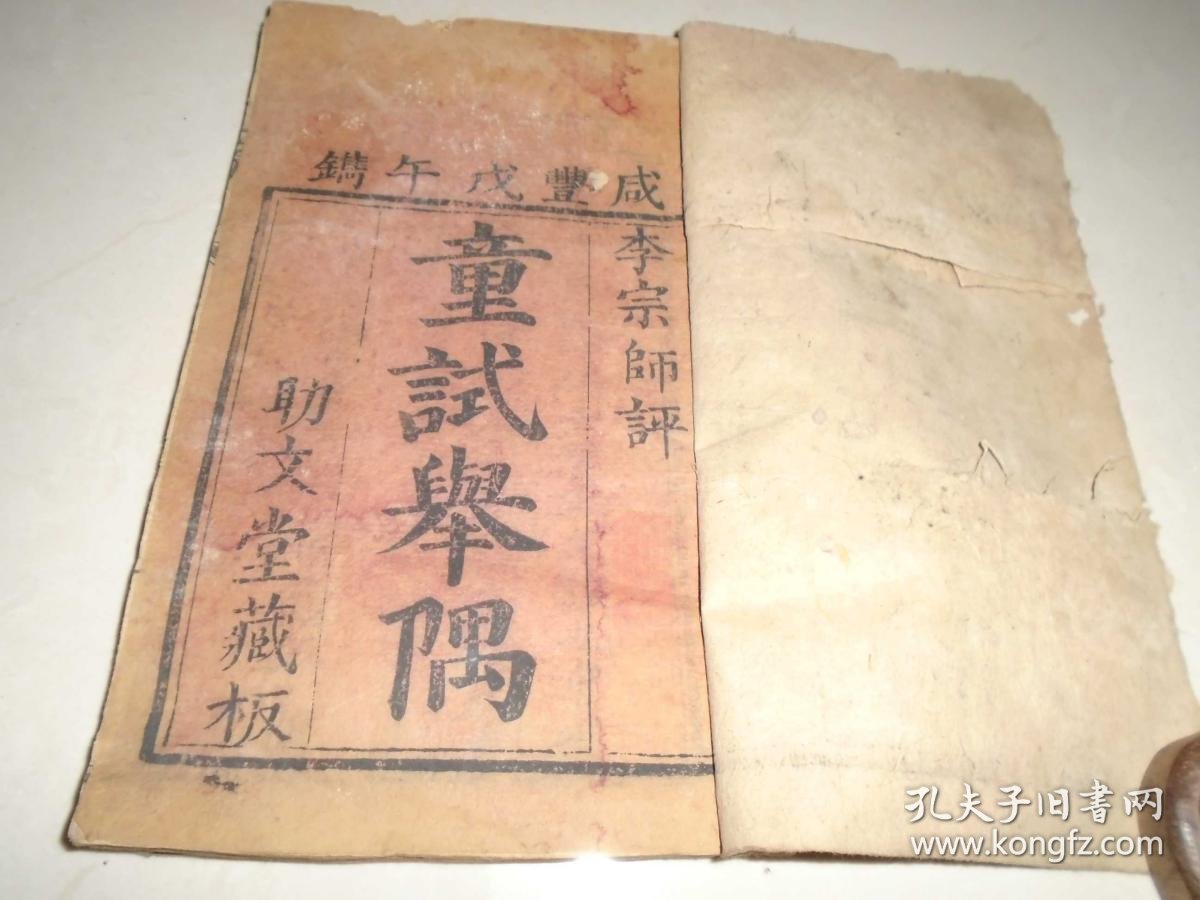 咸豐戊午鐫
李宗師評
童試舉隅
助文堂藏板
孔夫子旧书网
www.kongfz.com